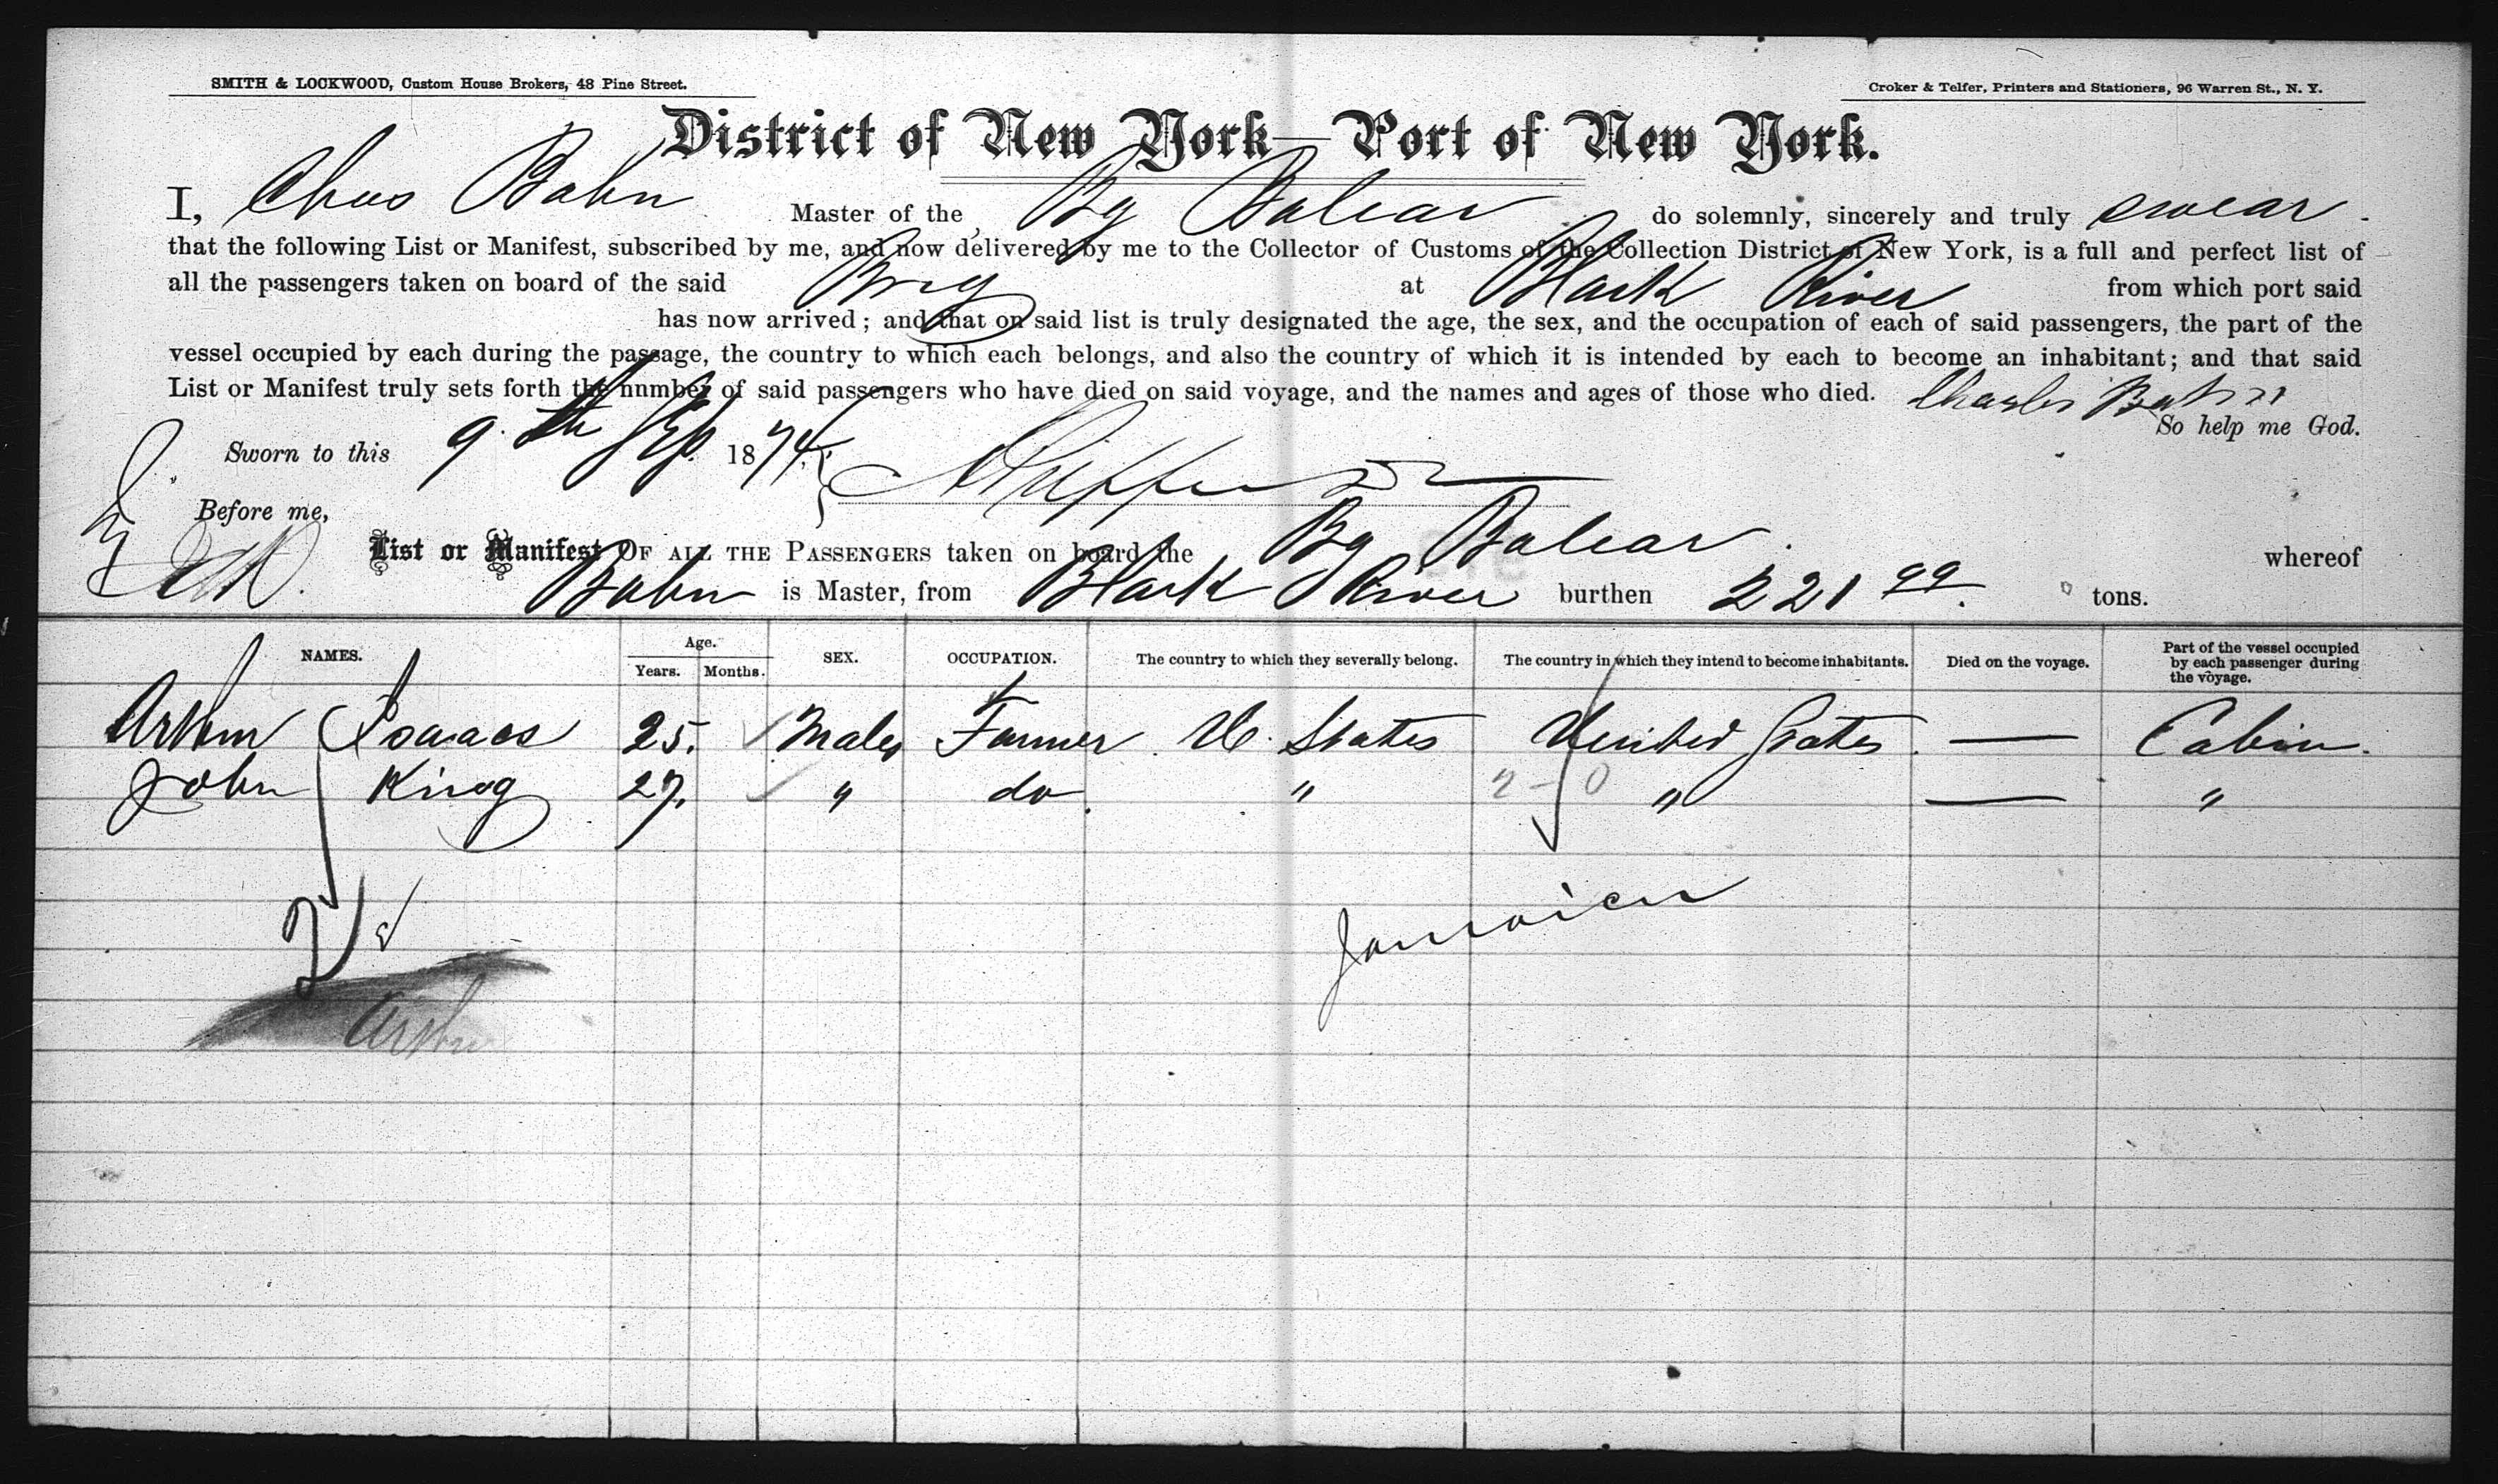 SMITH & LOCKWOOD, Custom House Brokers, 48 Pine Street.
Croker & Telfer, Printers and Stationers, 96 Warren St., N. Y.
District of New York—Port of New York.
I, Chas Bahn Master of the Bg Balear do solemnly, sincerely and truly swear
that the following List or Manifest, subscribed by me, and now delivered by me to the Collector of Customs of the Collection District of New York, is a full and perfect list of
all the passengers taken on board of the said Brig at Black River from which port said
has now arrived; and that on said list is truly designated the age, the sex, and the occupation of each of said passengers, the part of the
vessel occupied by each during the passage, the country to which each belongs, and also the country of which it is intended by each to become an inhabitant; and that said
List or Manifest truly sets forth the number of said passengers who have died on said voyage, and the names and ages of those who died. Charles Bahn
So help me God.
Sworn to this 9th Sep 1874
Before me,
List or Manifest OF ALL THE PASSENGERS taken on board the Bg Balear whereof
Bahn is Master, from Black River burthen 221 99 tons.
NAMES. Age. Years. Months. SEX. OCCUPATION. The country to which they severally belong. The country in which they intend to become inhabitants. Died on the voyage. Part of the vessel occupied by each passenger during the voyage.
Arthur Isaacs 25. Males Farmer U. States United States — Cabin.
John King 27. " do " " — "
2-0
2
Jamaica
Arthur